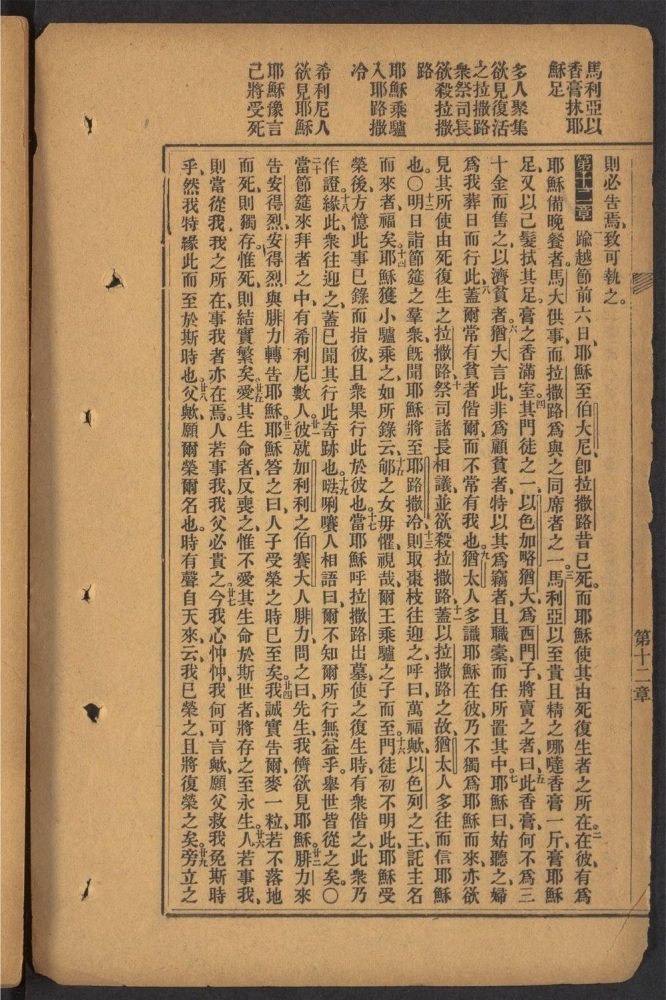 馬利亞以
香膏抹耶
穌足
多人聚集
欲見復活
之拉撒路
衆祭司長
欲殺拉撒
路
耶穌乘驢
入耶路撒
冷
希利尼人
欲見耶穌
耶穌豫言
己將受死
第十二章
則必告焉、致可執之。
第十二章 一踰越節前六日、耶穌至伯大尼、卽拉撒路昔已死、而耶穌使其由死復生者之所在。二在彼有爲
耶穌備晚餐者、馬大供事、而拉撒路爲與之同席者之一。三馬利亞以至貴且精之哪噠香膏一斤、膏耶穌
足、又以己髮拭其足、膏之香滿室。四其門徒之一、以色加略猶大、爲西門子、將賣之者、曰、五此香膏何不爲三
十金而售之、以濟貧者。六猶大言此、非爲顧貧者、特以其爲竊者、且職橐而任所置其中。七耶穌曰、姑聽之、婦
爲我葬日而行此、八蓋爾常有貧者偕爾、而不常有我也。九猶太人多識耶穌在彼、乃不獨爲耶穌而來、亦欲
見其所使由死復生之拉撒路。十祭司諸長相議、並欲殺拉撒路、十一蓋以拉撒路之故、猶太人多往而信耶穌
也。○十二明日詣節筵之羣衆、旣聞耶穌將至耶路撒冷、十三則取棗枝往迎之、呼曰、萬福歟、以色列之王、託主名
而來者、福矣。十四耶穌獲小驢乘之、如所錄云、十五郇之女毋懼、視哉、爾王乘驢之子而至。十六門徒初不明此、耶穌受
榮後、方憶此事已錄而指彼、且衆果行此於彼也。十七當耶穌呼拉撒路出墓、使之復生時、有衆偕之、此衆乃
作證、十八緣此衆往迎之、蓋已聞其行此奇跡也。十九𠵽唎㘔人相語曰、爾不知爾所行無益乎、舉世皆從之矣。○
二十當節筵來拜者之中、有希利尼數人、廿一彼就加利利之伯賽大人腓力、問之曰、先生、我儕欲見耶穌。廿二腓力來
告安得烈、安得烈與腓力轉告耶穌。廿三耶穌答之曰、人子受榮之時已至矣、廿四我誠實告爾、麥一粒、若不落地
而死、則獨存、惟死、則結實繁矣。廿五愛其生命者、反喪之、惟不愛其生命於斯世者、將存之至永生。廿六人若事我、
則當從我、我之所在、事我者亦在焉、人若事我、我父必貴之。廿七今我心忡忡、我何可言歟、願父救我免斯時
乎、然我特緣此而至於斯時也。廿八父歟、願爾榮爾名也。時有聲自天來、云、我已榮之、且將復榮之矣。廿九旁立之